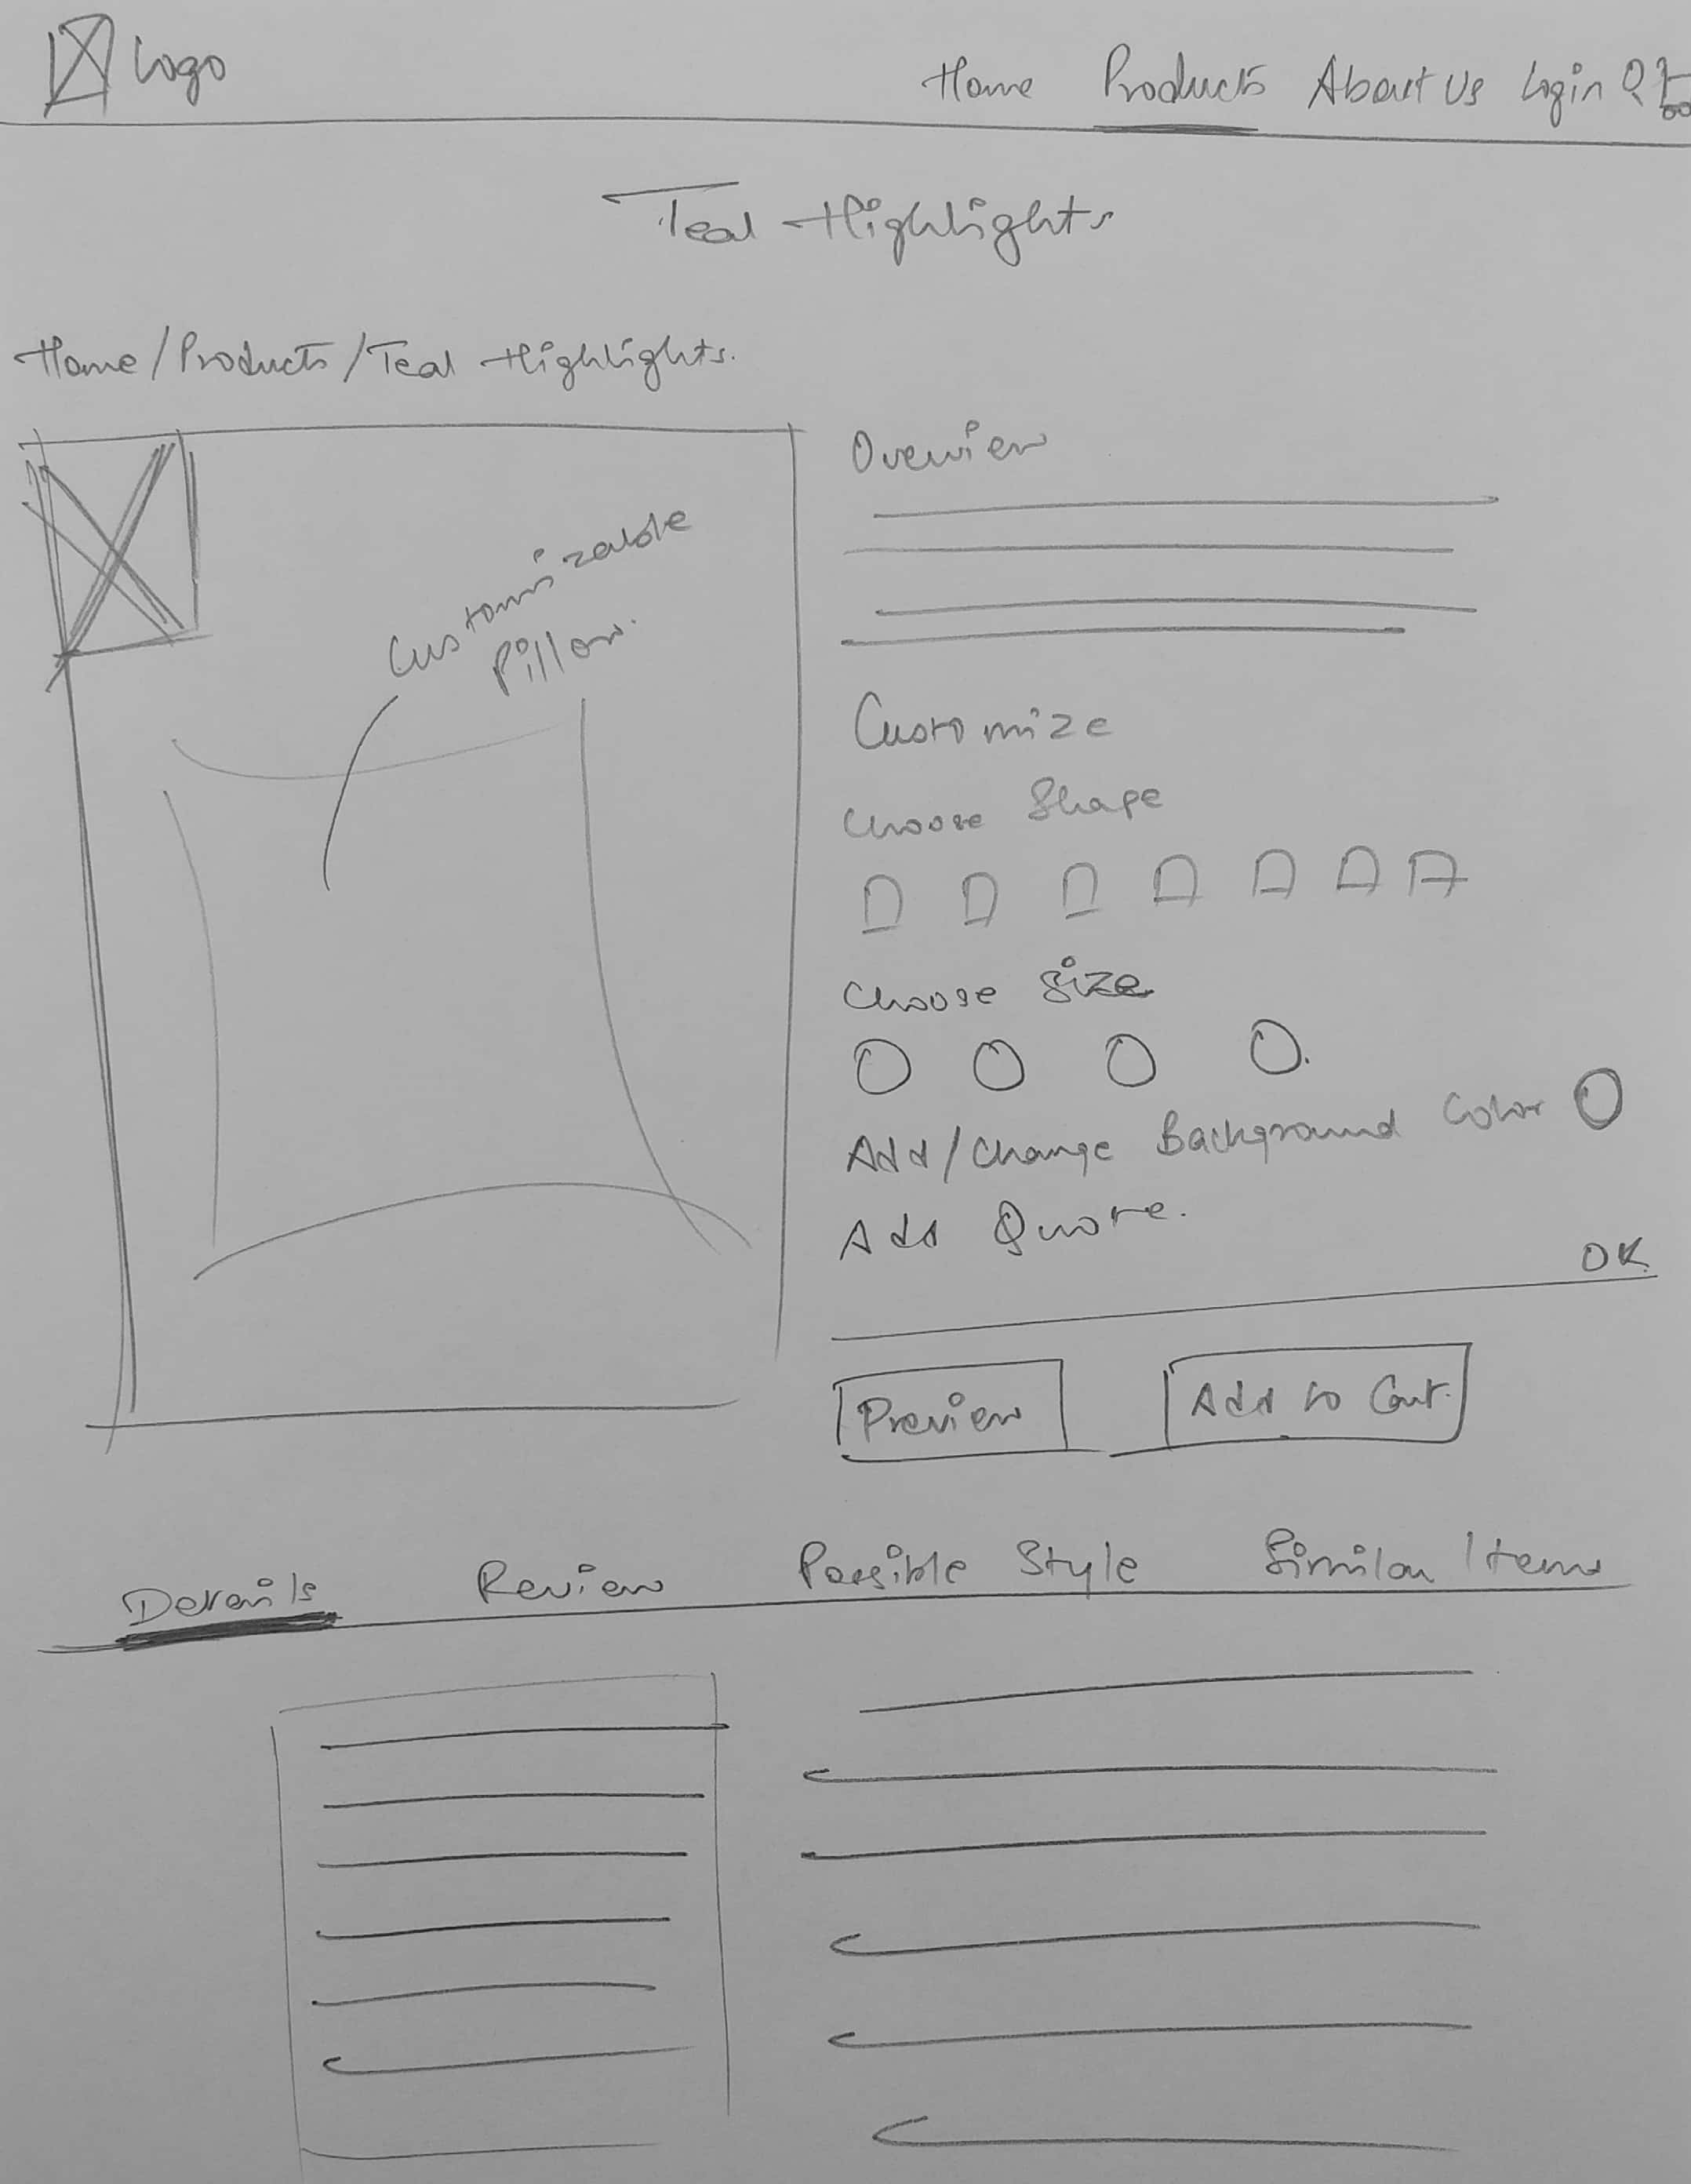 Logo
Home Products About Us Login
Teal Highlights
Home/Products/Teal Highlights.
Overview
Customizable
Pillow.
Customize
Choose Shape
Choose Size
Add/Change Background Color
Add Quote.
OK
Preview
Add to Cart.
Details Review Possible Style Similar Items